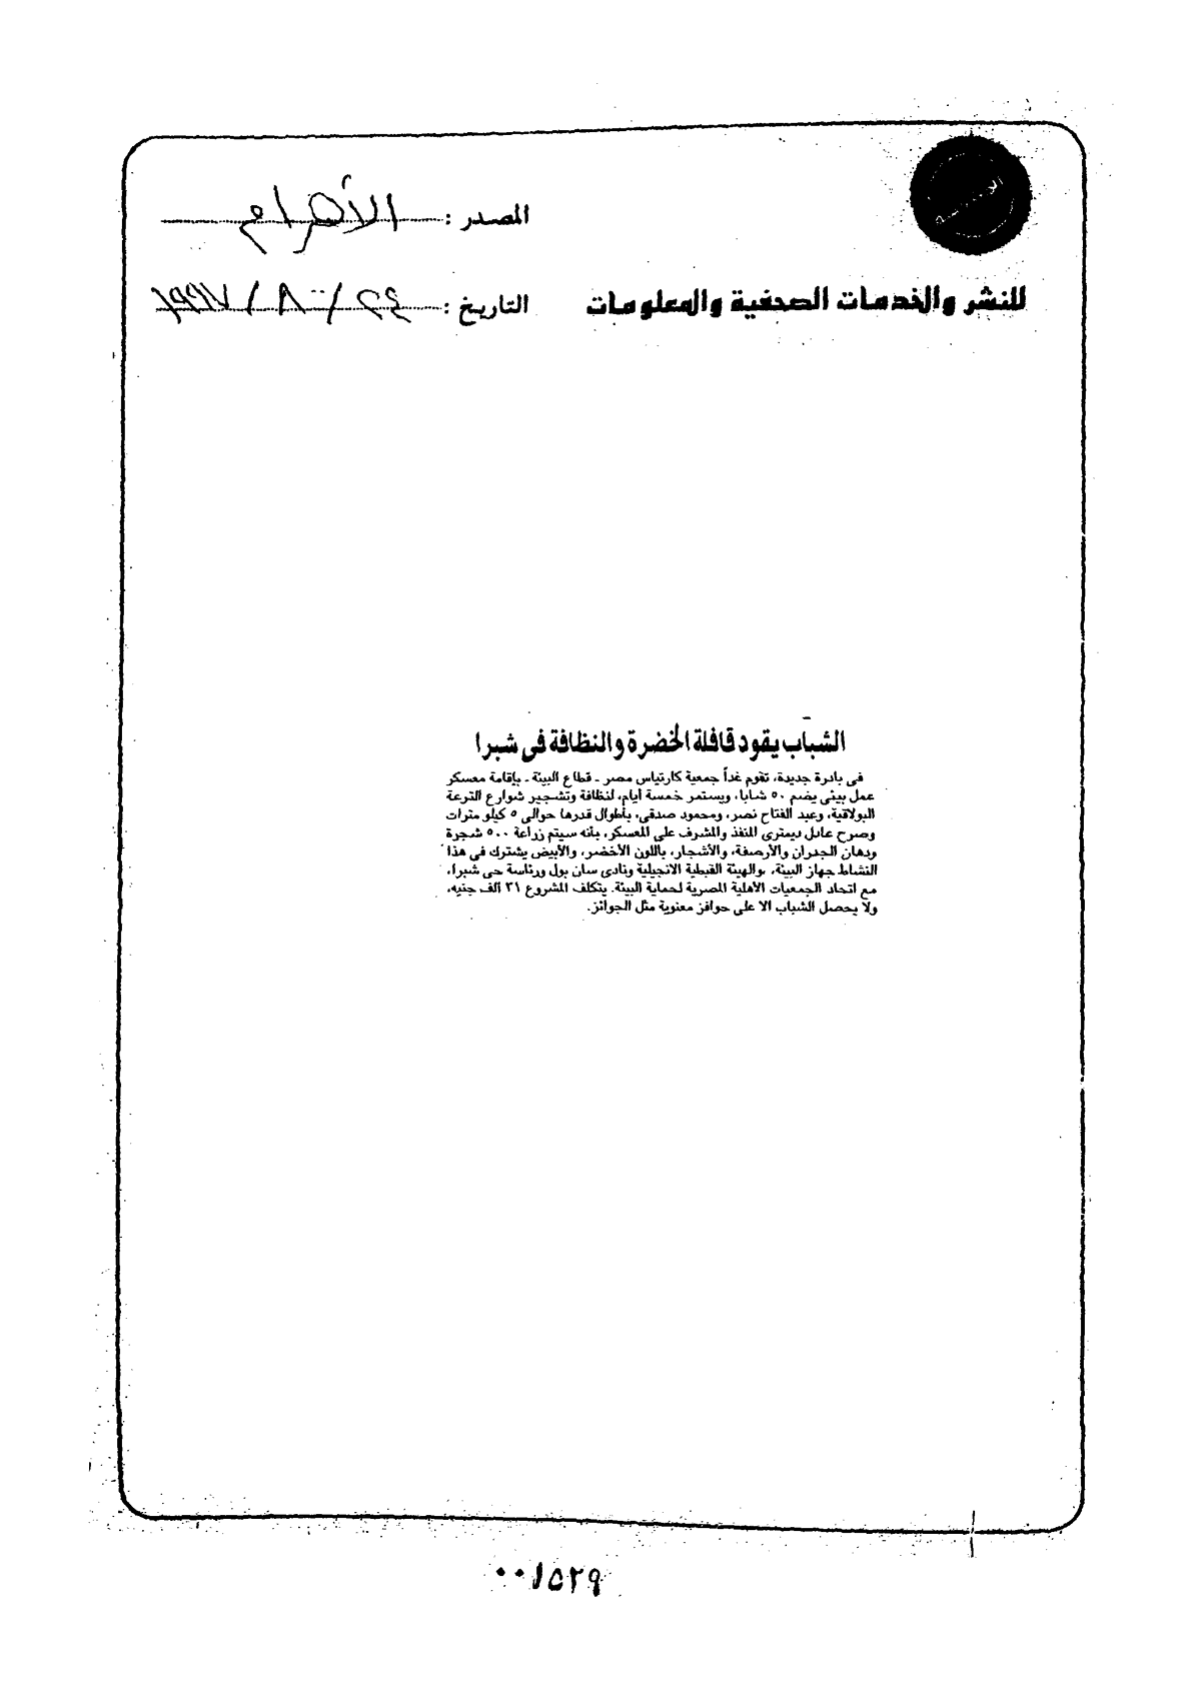 المصدر : الأهرام
للنشر والخدمات الصحفية والمعلومات
التاريخ : ٢٤ / ٨ / ١٩٩٧
الشباب يقود قافلة الخضرة والنظافة فى شبرا
فى بادرة جديدة، تقوم غداً جمعية كارتياس مصر ـ قطاع البيئة ـ بإقامة معسكر
عمل بيئى يضم ٥٠ شابا، ويستمر خمسة أيام، لنظافة وتشجير شوارع الترعة
البولاقية، وعبد الفتاح نصر، ومحمود صدقى، بأطوال قدرها حوالى ٥ كيلو مترات
وصرح عادل ديمترى المنفذ والمشرف على المعسكر، بأنه سيتم زراعة ٥٠٠ شجرة
ودهان الجدران والأرصفة، والأشجار، باللون الأخضر، والأبيض يشترك فى هذا
النشاط جهاز البيئة، والهيئة القبطية الانجيلية ونادى سان بول ورئاسة حى شبرا،
مع اتحاد الجمعيات الأهلية المصرية لحماية البيئة. يتكلف المشروع ٣١ ألف جنيه،
ولا يحصل الشباب الا على حوافز معنوية مثل الجوائز.
٠٠١٥٢٩